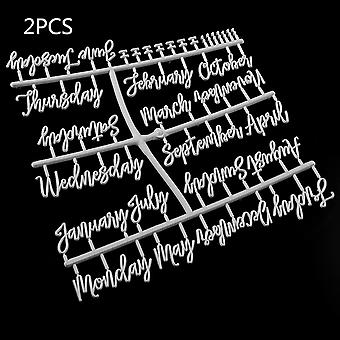 2PCS
Tuesday June
Thursday
February October
March November
Saturday
September April
Wednesday
August
Sunday
January July
Monday May December Friday